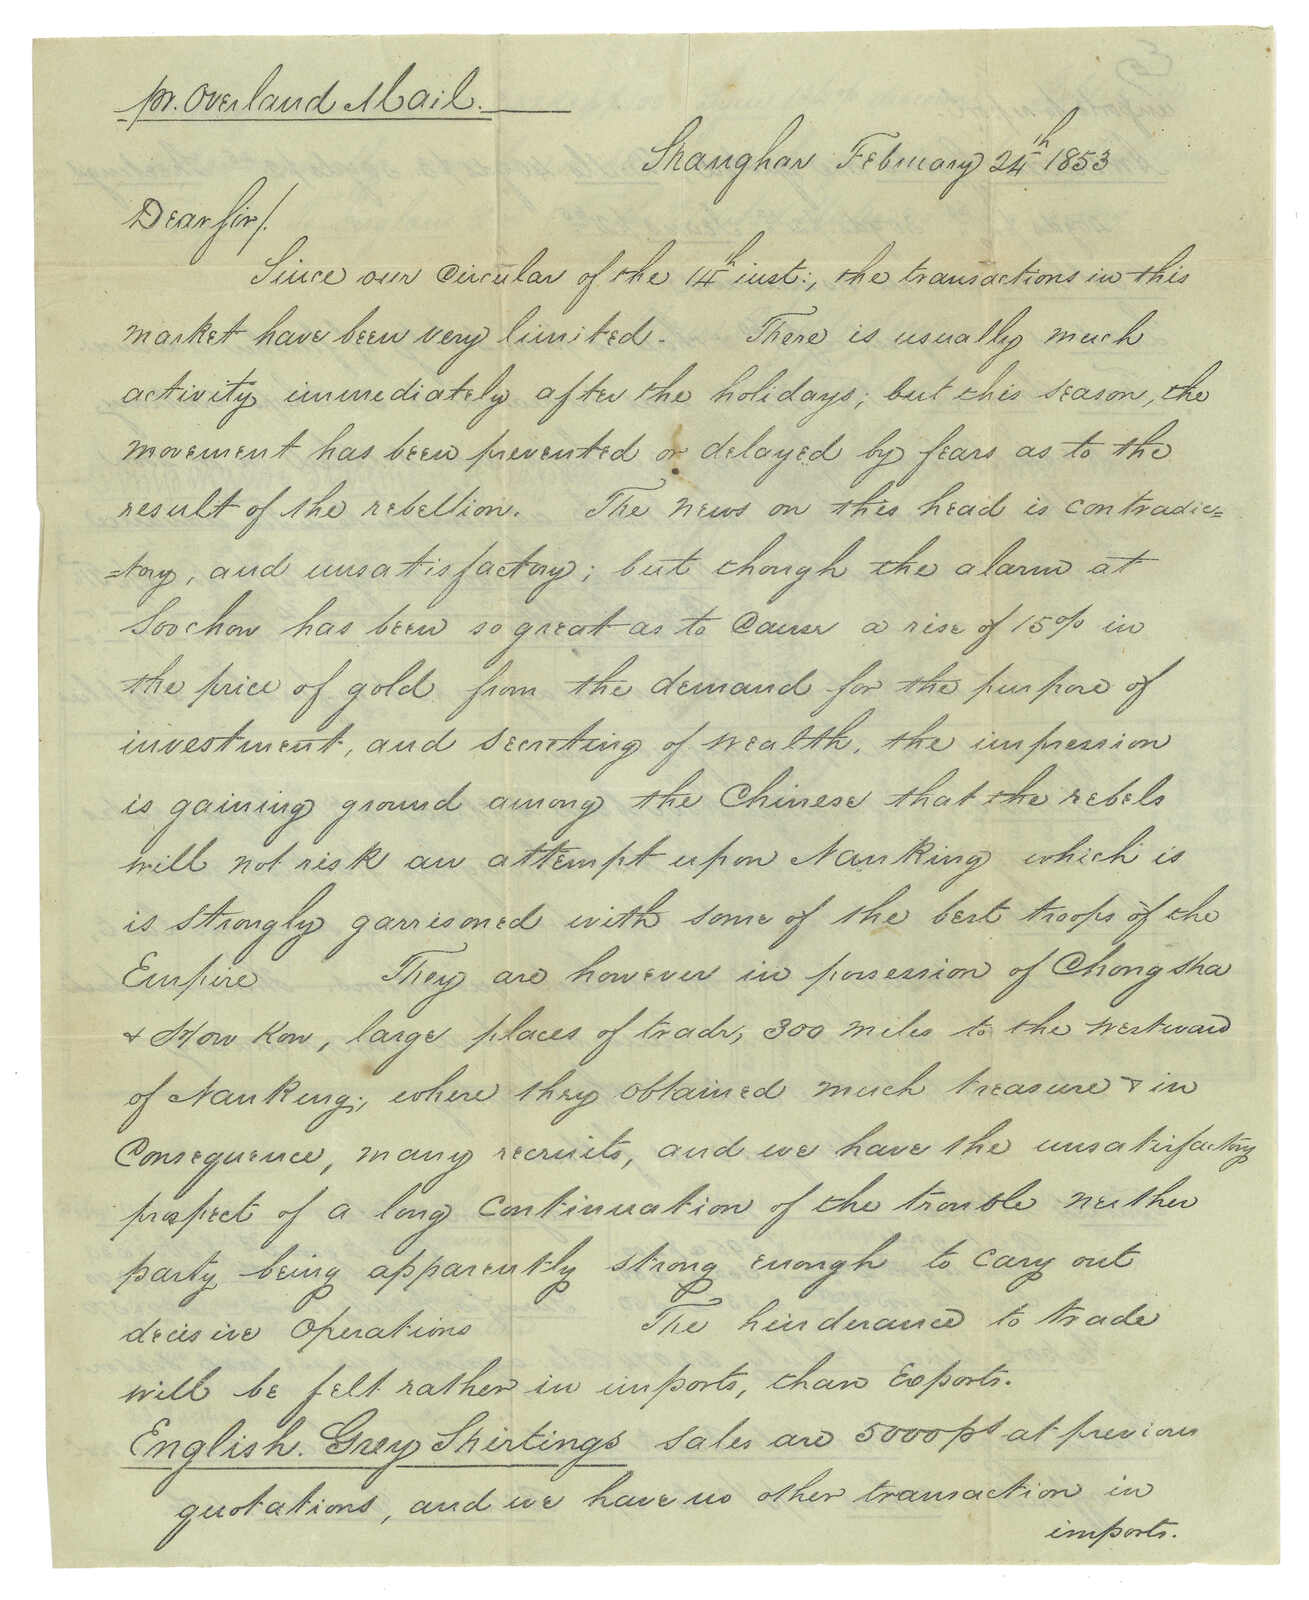 pr. Overland Mail.
Shanghai February 24th 1853
Dear Sir/.
Since our Circular of the 14th inst:, the transactions in this
market have been very limited. There is usually much
activity immediately after the holidays; but this season, the
movement has been prevented or delayed by fears as to the
result of the rebellion. The news on this head is contradic=
=tory, and unsatisfactory; but though the alarm at
Soochow has been so great as to Cause a rise of 15 o/o in
the price of gold from the demand for the purpose of
investment, and secreting of wealth, the impression
is gaining ground among the Chinese that the rebels
will not risk an attempt upon Nanking which is
is strongly garrisoned with some of the best troops of the
Empire They are however in possession of Chongsha
& How Kow, large places of trade, 300 miles to the westward
of Nanking; where they obtained much treasure & in
Consequence, many recruits, and we have the unsatisfactory
prospect of a long Continuation of the trouble neither
party being apparently strong enough to cary out
decisive Operations The hinderance to trade
will be felt rather in imports, than Exports.
English. Grey Shirtings sales are 5000 ps at previous
quotations, and we have no other transaction in
imports.